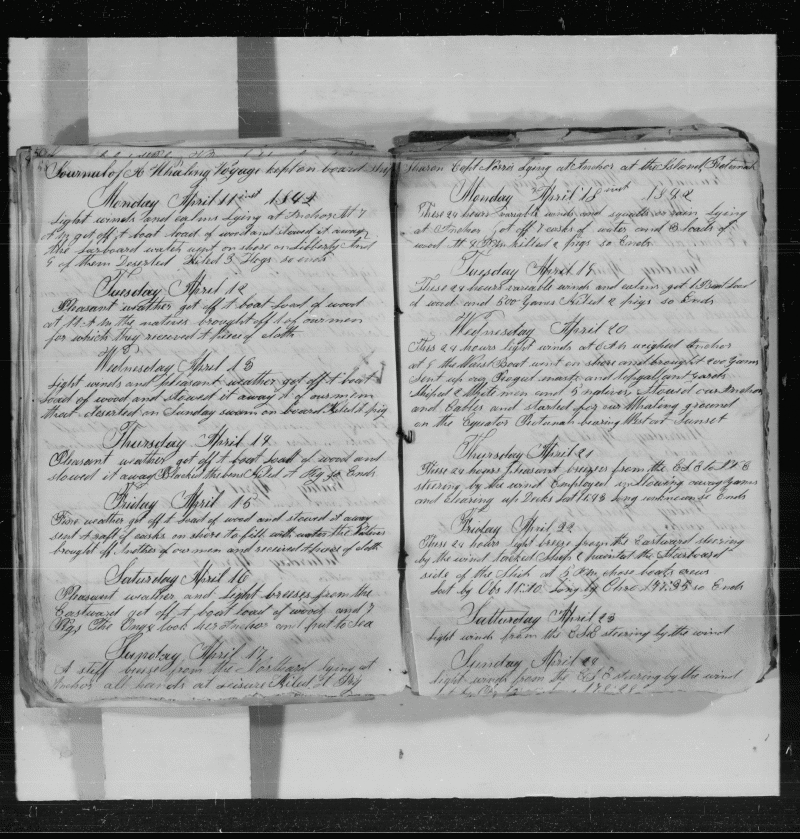 Journal of A Whaling Voyage kept on board Ship
Monday April 11 inst 1842
Light winds and calms lying at Anchor At 7
got off 1 boat load of wood and stowed it away
the Larboard watch went on shore on Liberty And
5 of them Deserted Killed 3 Hogs so ends
Tuesday April 12
Pleasant weather got off 1 boat load of wood
at the natives brought off 1 of our men
for which they received 1 piece of cloth
Wednesday April 13
Light winds and pleasant weather got off 1 boat
Load of wood and Stowed it away 1 of our men
that deserted on Sunday swam on board Killed 1 pig
Thursday April 14
Pleasant weather got off 1 boat Load of wood and
stowed it away Killed 1 Hog so Ends
Friday April 15
Fine weather got off 1 Load of wood and stowed it away
sent 1 raft of casks on shore to fill with water the Natives
brought off another of our men and received 1 piece of cloth
Saturday April 16
Pleasant weather and Light breeses from the
Eastward got off 1 boat load of wood and 7
Pigs The took her Anchor and put to Sea
Sunday April 17
A stiff breese from the Northard lying at
Anchor all hands at Leisure Killed 1 Pig
Sharon Capt Norris Lying at Anchor at the Island Rotumah
Monday April 18 inst 1842
These 24 hours variable winds and squalls of rain lying
at Anchor Got off 7 casks of water and 3 Loads of
wood At 4 P.M. killed 2 pigs so Ends
Tuesday April 19
These 24 hours variable winds and calms got 1 Boat load
of wood and 500 Yams Killed 2 pigs so Ends
Wednesday April 20
These 24 hours light winds at 6 A.M. weighed Anchor
at 9 the Waist Boat went on shore and brought 200 Yams
Sent up our Royal masts and Topgallant yards
Shiped 2 White men and 5 natives Stowed our Anchors
and Cables and started for our Whaling ground
on the Equator Rotumah bearing West at Sunset
Thursday April 21
These 24 hours pleasant breeses from the E.S.E to N.E
steering by the wind Employed in Stowing away Yams
and clearing up Decks Lat 11.43 Long unknown so Ends
Friday April 22
These 24 hours light breese from the Eastward steering
by the wind tacked Ship 2 the Starboard
side of the Ship at 5 P.M. chose boats crews
Lat by Obs 11.10 Long by Chro 177.35 so Ends
Satturday April 23
Light winds from the ESE steering by the wind
Sunday April 24
Light winds from the steering by the wind